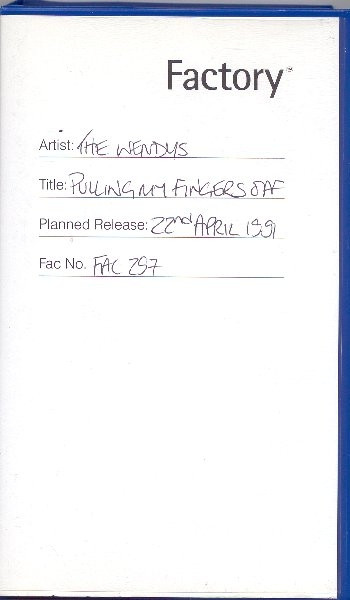 Factory®
Artist: THE WENDYS
Title: PULLING MY FINGERS OFF
Planned Release: 22nd APRIL 1991
Fac No. FAC 297